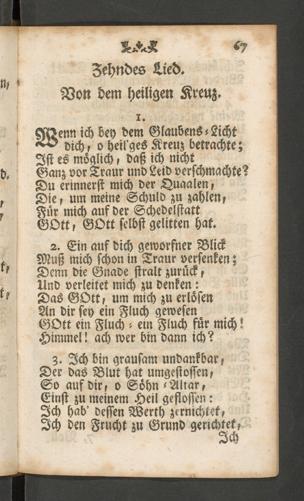 67
Zehndes Lied.
Von dem heiligen Kreuz.
1.
Wenn ich bey dem Glaubens-Licht
dich, o heil'ges Kreuz betrachte;
Ist es möglich, daß ich nicht
Ganz vor Traur und Leid verschmachte?
Du erinnerst mich der Quaalen,
Die, um meine Schuld zu zahlen,
Für mich auf der Schedelstatt
GOtt, GOtt selbst gelitten hat.
2. Ein auf dich geworfner Blick
Muß mich schon in Traur versenken;
Denn die Gnade stralt zurück,
Und verleitet mich zu denken:
Das GOtt, um mich zu erlösen
An dir sey ein Fluch gewesen
GOtt ein Fluch - ein Fluch für mich!
Himmel! ach wer bin dann ich?
3. Ich bin grausam undankbar,
Der das Blut hat umgestossen,
So auf dir, o Söhn-Altar,
Einst zu meinem Heil geflossen:
Ich hab' dessen Werth zernichtet,
Ich den Frucht zu Grund gerichtet,
Ich